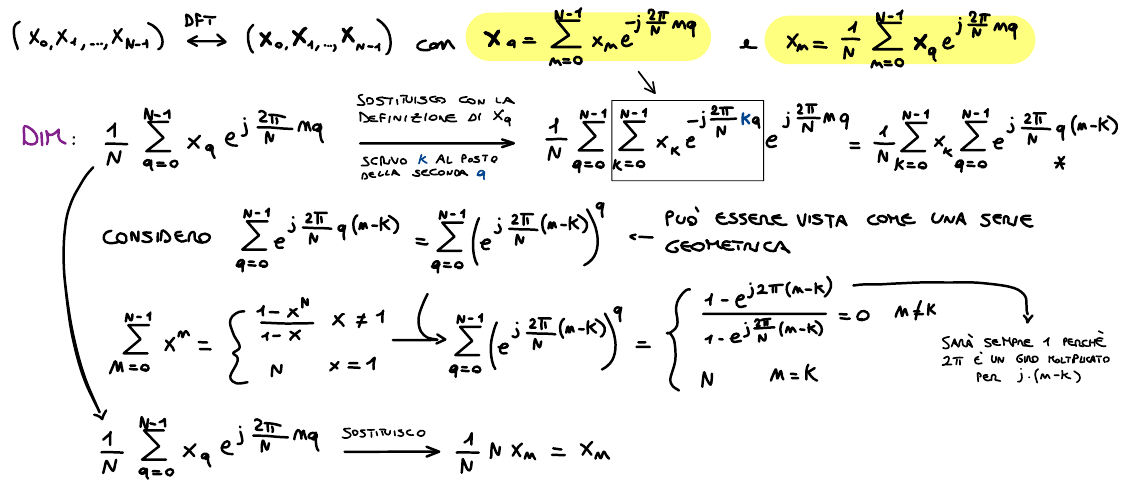 (x₀, x₁, ..., x_{N-1}) DFT ↔ (X₀, X₁, .., X_{N-1}) con X_q = ∑_{m=0}^{N-1} x_m e^{-j 2π/N mq} e x_m = 1/N ∑_{m=0}^{N-1} X_q e^{j 2π/N mq}
DIM: 1/N ∑_{q=0}^{N-1} X_q e^{j 2π/N mq} SOSTITUISCO CON LA DEFINIZIONE DI X_q → SCRIVO K AL POSTO DELLA SECONDA q 1/N ∑_{q=0}^{N-1} ∑_{K=0}^{N-1} x_K e^{-j 2π/N Kq} e^{j 2π/N mq} = 1/N ∑_{K=0}^{N-1} x_K ∑_{q=0}^{N-1} e^{j 2π/N q(m-K)} *
CONSIDERO ∑_{q=0}^{N-1} e^{j 2π/N q(m-K)} = ∑_{q=0}^{N-1} (e^{j 2π/N (m-K)})^q ← PUÒ ESSERE VISTA COME UNA SERIE GEOMETRICA
∑_{m=0}^{N-1} x^m = { (1-x^N)/(1-x) x ≠ 1 ; N x = 1 → ∑_{q=0}^{N-1} (e^{j 2π/N (m-K)})^q = { (1-e^{j2π(m-K)})/(1-e^{j 2π/N (m-K)}) = 0 m≠K ; N m = K
SARÀ SEMPRE 1 PERCHÈ
2π È UN GIRO MOLTPLICATO
PER j·(m-K)
1/N ∑_{q=0}^{N-1} X_q e^{j 2π/N mq} SOSTITUISCO → 1/N N x_m = x_m